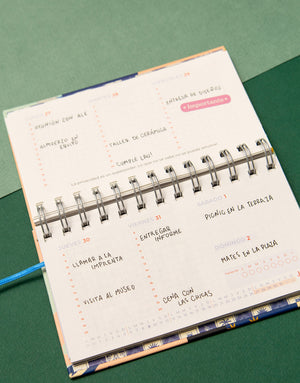 27
REUNIÓN CON ALE
ALMUERZO EN
EQUIPO
28
TALLER DE CERÁMICA
CUMPLE LAU!
29
ENTREGA DE DISEÑOS
Importante
JUEVES 30
LLAMAR A LA
IMPRENTA
VISITA AL MUSEO
VIERNES 31
ENTREGAR
INFORME
CENA CON
LAS CHICAS
SÁBADO 1
PICNIC EN LA TERRAZA
DOMINGO 2
MATES EN LA PLAZA